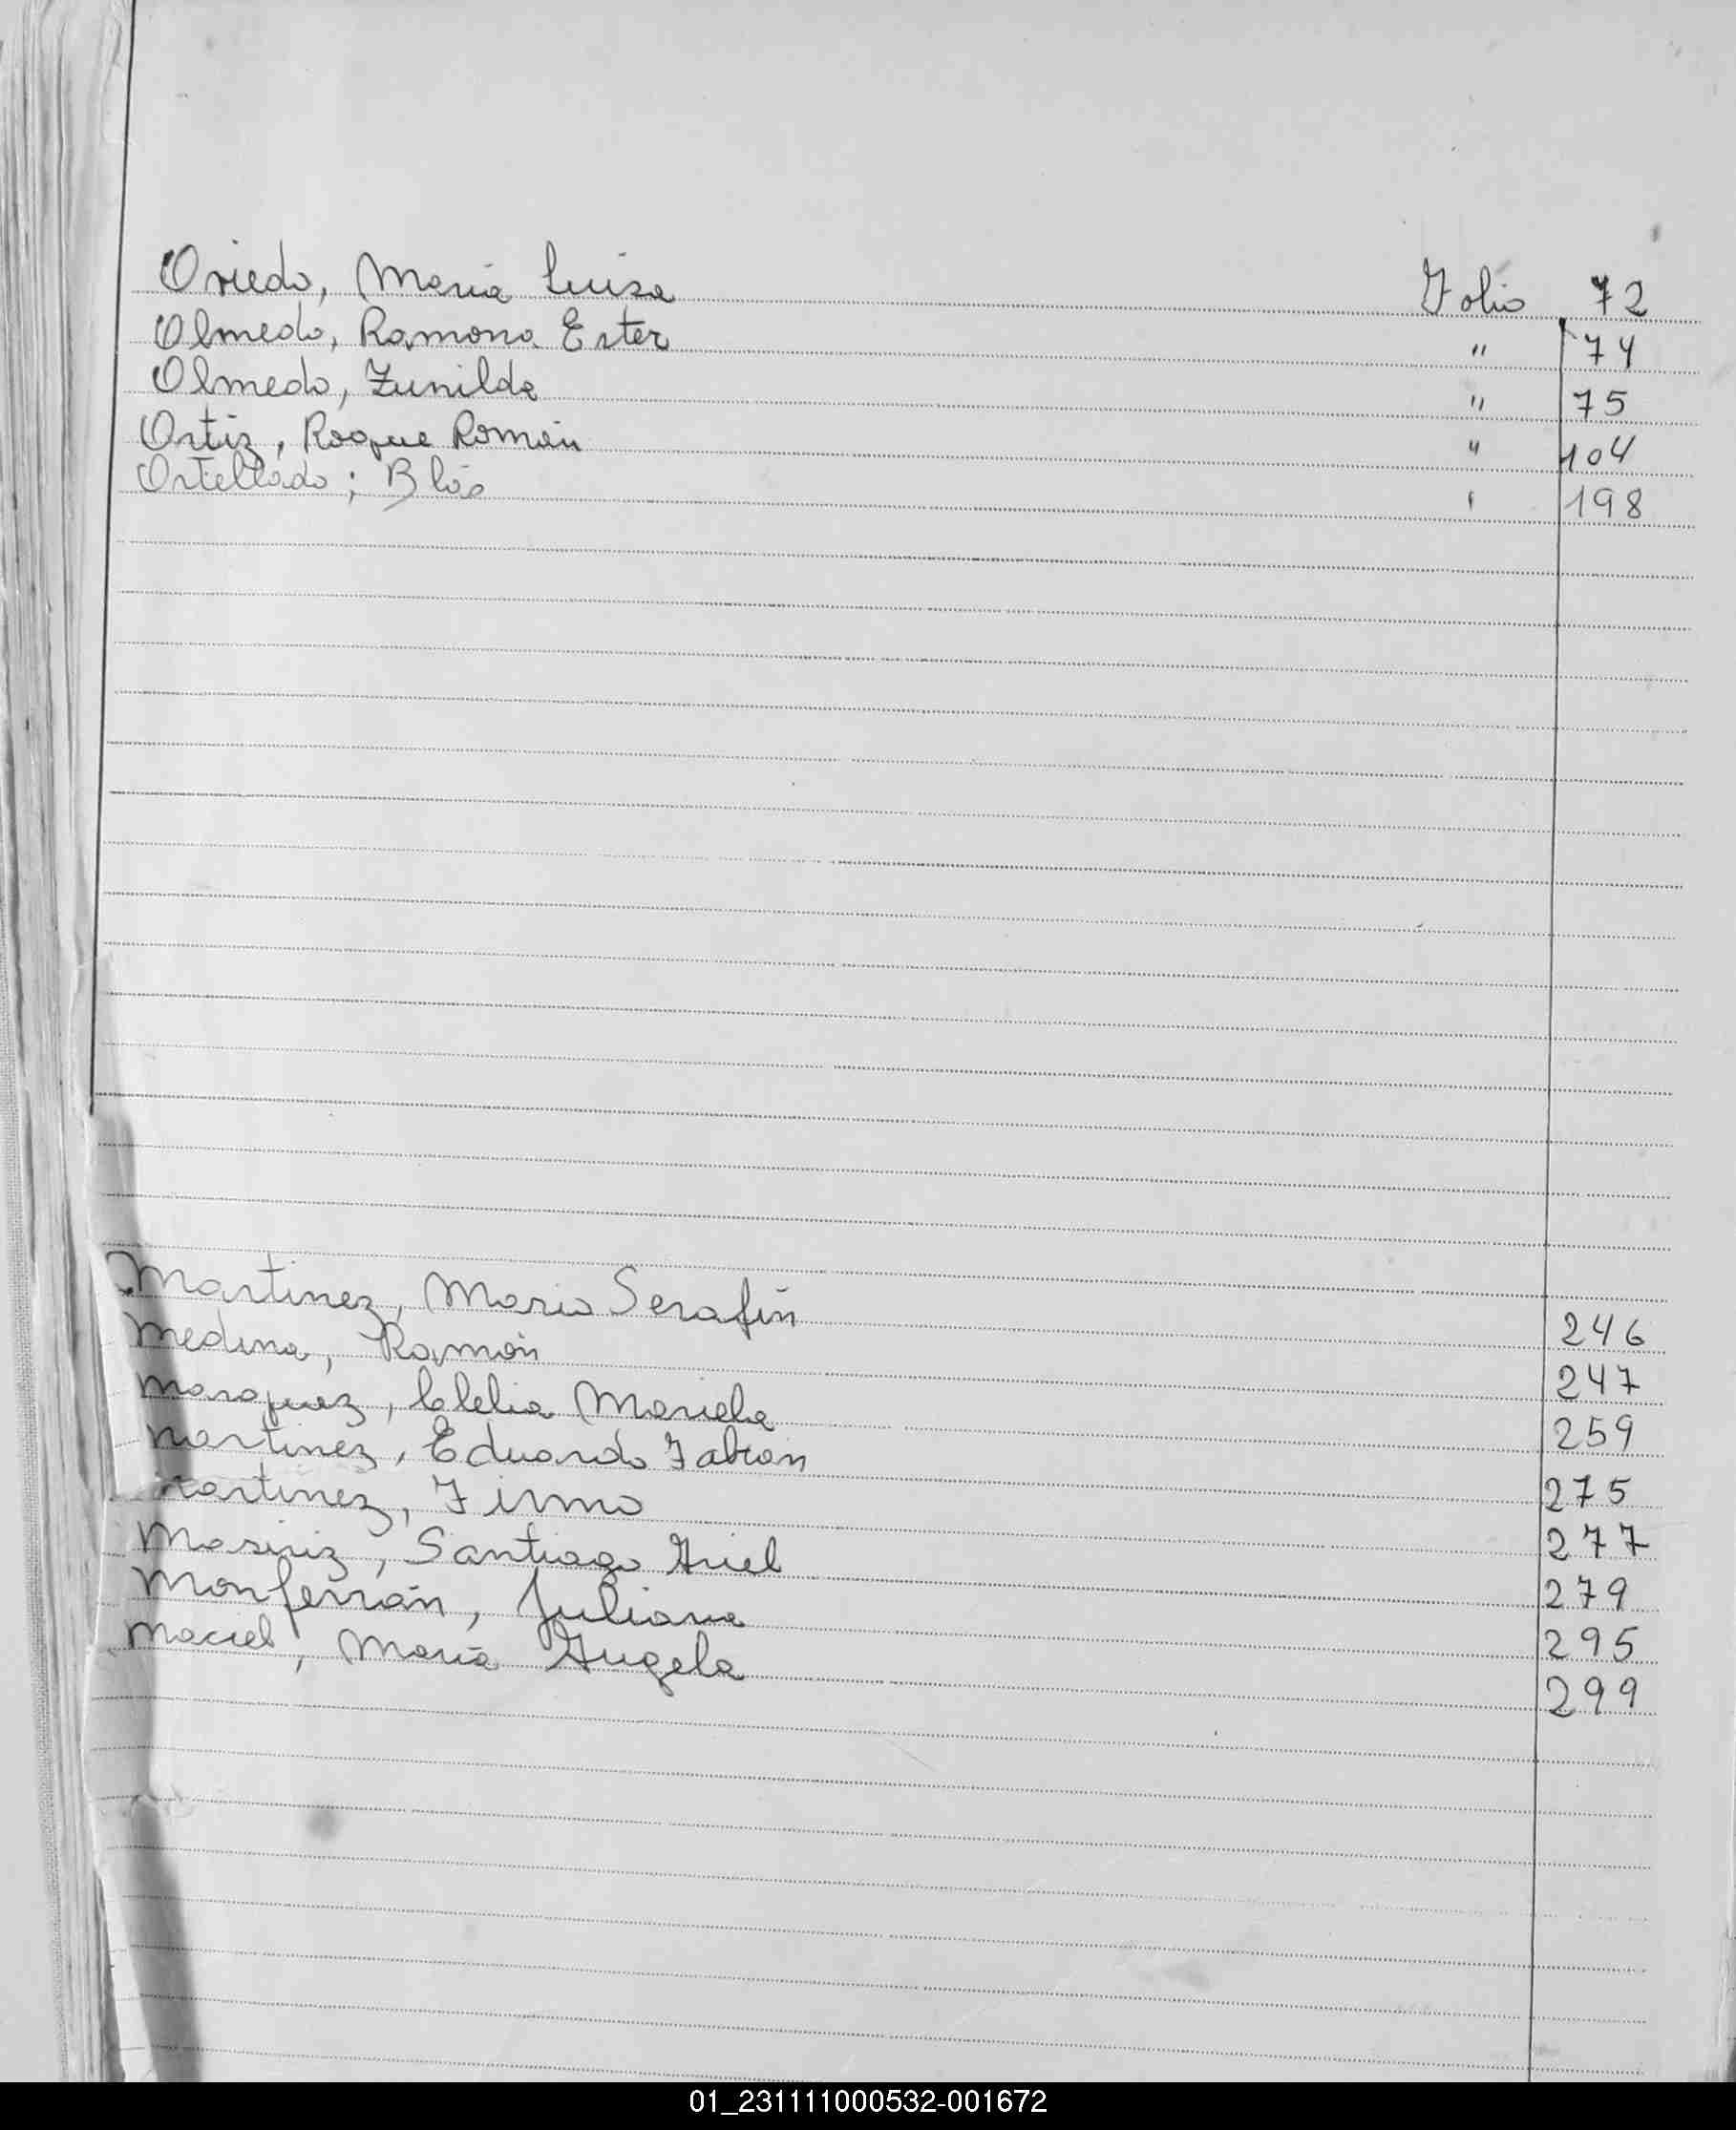 Oviedo, María Luisa Folio 72
Olmedo, Ramona Ester " 74
Olmedo, Zunilda " 75
Ortiz, Roque Román " 104
Ortellado; Blás ' 198
Martinez, Mario Serafín 246
Medina, Ramón 247
Marquez, Clelia Mariela 259
Martinez, Eduardo Fabián 275
Martinez, Firmo 277
Masiriz, Santiago Ariel 279
Monferrán, Juliana 295
Maciel, María Angela 299
01_231111000532-001672